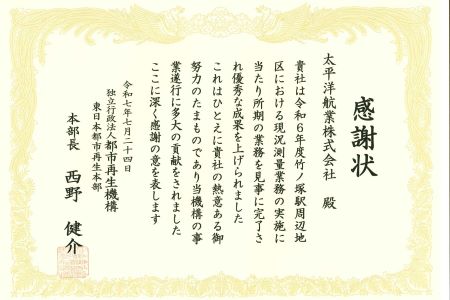 感謝状
太平洋航業株式会社 殿
貴社は令和6年度竹ノ塚駅周辺地
区における現況測量業務の実施に
当たり所期の業務を見事に完了さ
れ優秀な成果を上げられました
これはひとえに貴社の熱意ある御
努力のたまものであり当機構の事
業遂行に多大の貢献をされました
ここに深く感謝の意を表します
令和七年七月二十四日
独立行政法人都市再生機構
東日本都市再生本部
本部長 西野 健介